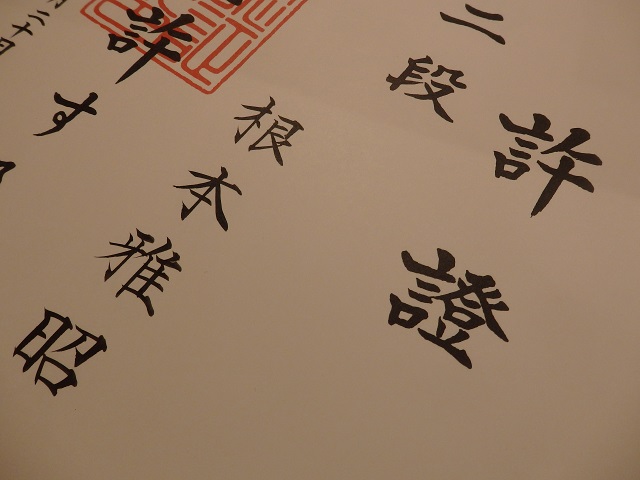 許證
二段
根本雅昭
許す
月二十日